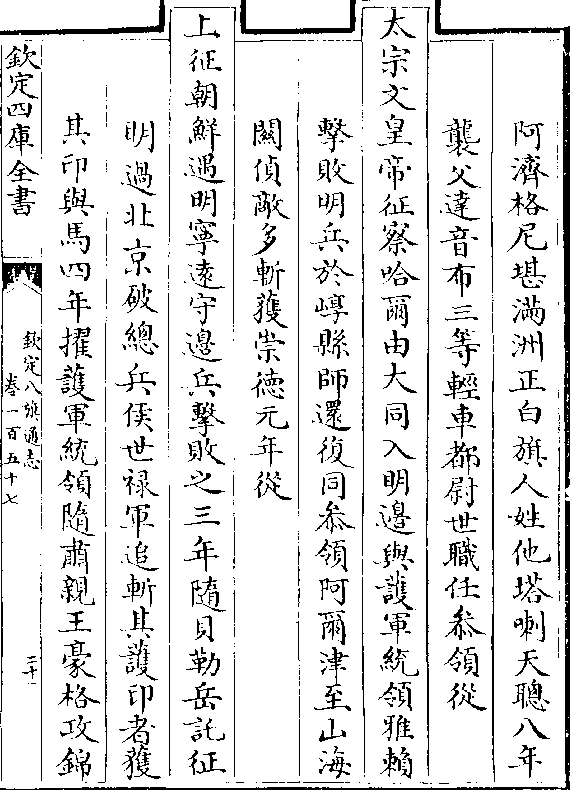 阿濟格尼堪滿洲正白旗人姓他塔喇天聰八年
襲父達音布三等輕車都尉世職任叅領從
太宗文皇帝征察哈爾由大同入明邊與護軍統領雅賴
擊敗明兵於崞縣師還復同叅領阿爾津至山海
關偵敵多斬獲崇德元年從
上征朝鮮遇明寧遠守邊兵擊敗之三年隨貝勒岳託征
明過北京破總兵侯世禄軍追斬其護印者獲
其印與馬四年擢護軍統領隨肅親王豪格攻錦
欽定四庫全書
欽定八旗通志
卷一百五十七